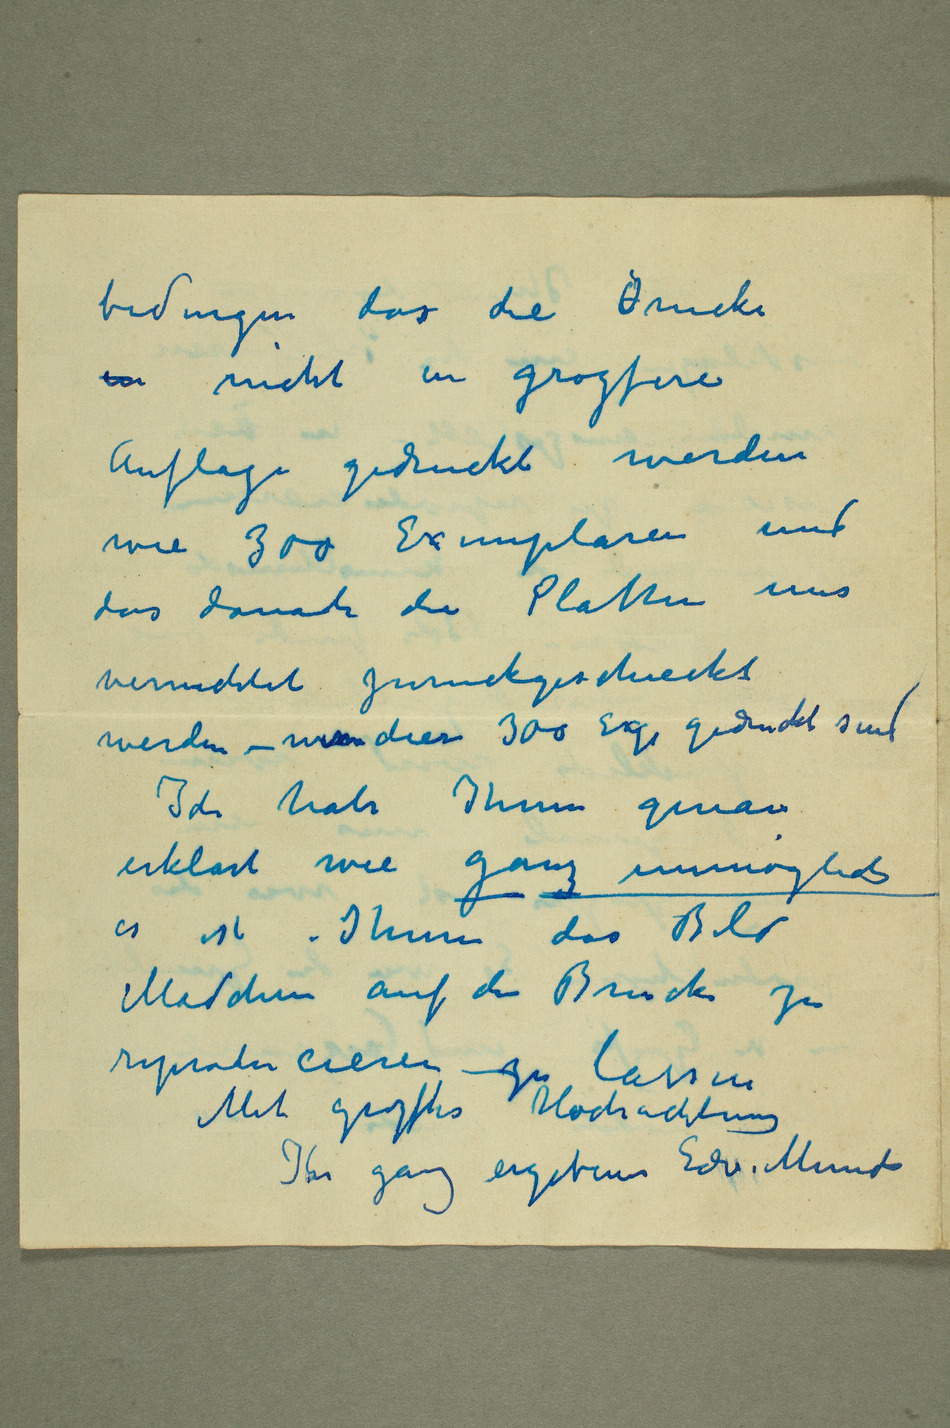 bedingen das die Drucke
in nicht in grogfere
Auflage gedruckt werden
wie 300 Exemplaren und
das danach die Platten uns
vernichtet zuruckgeschickt
werden – wenn diese 300 Exp gedruckt sind
Ich habe Ihnen genau
erklärt wie ganz unmöglich
es ist Ihnen das Bild
Mädchen auf der Brucke zu
reproducieren zu lassen
Mit grosster Hochachtung
Ihr ganz ergebener Edv. Munch